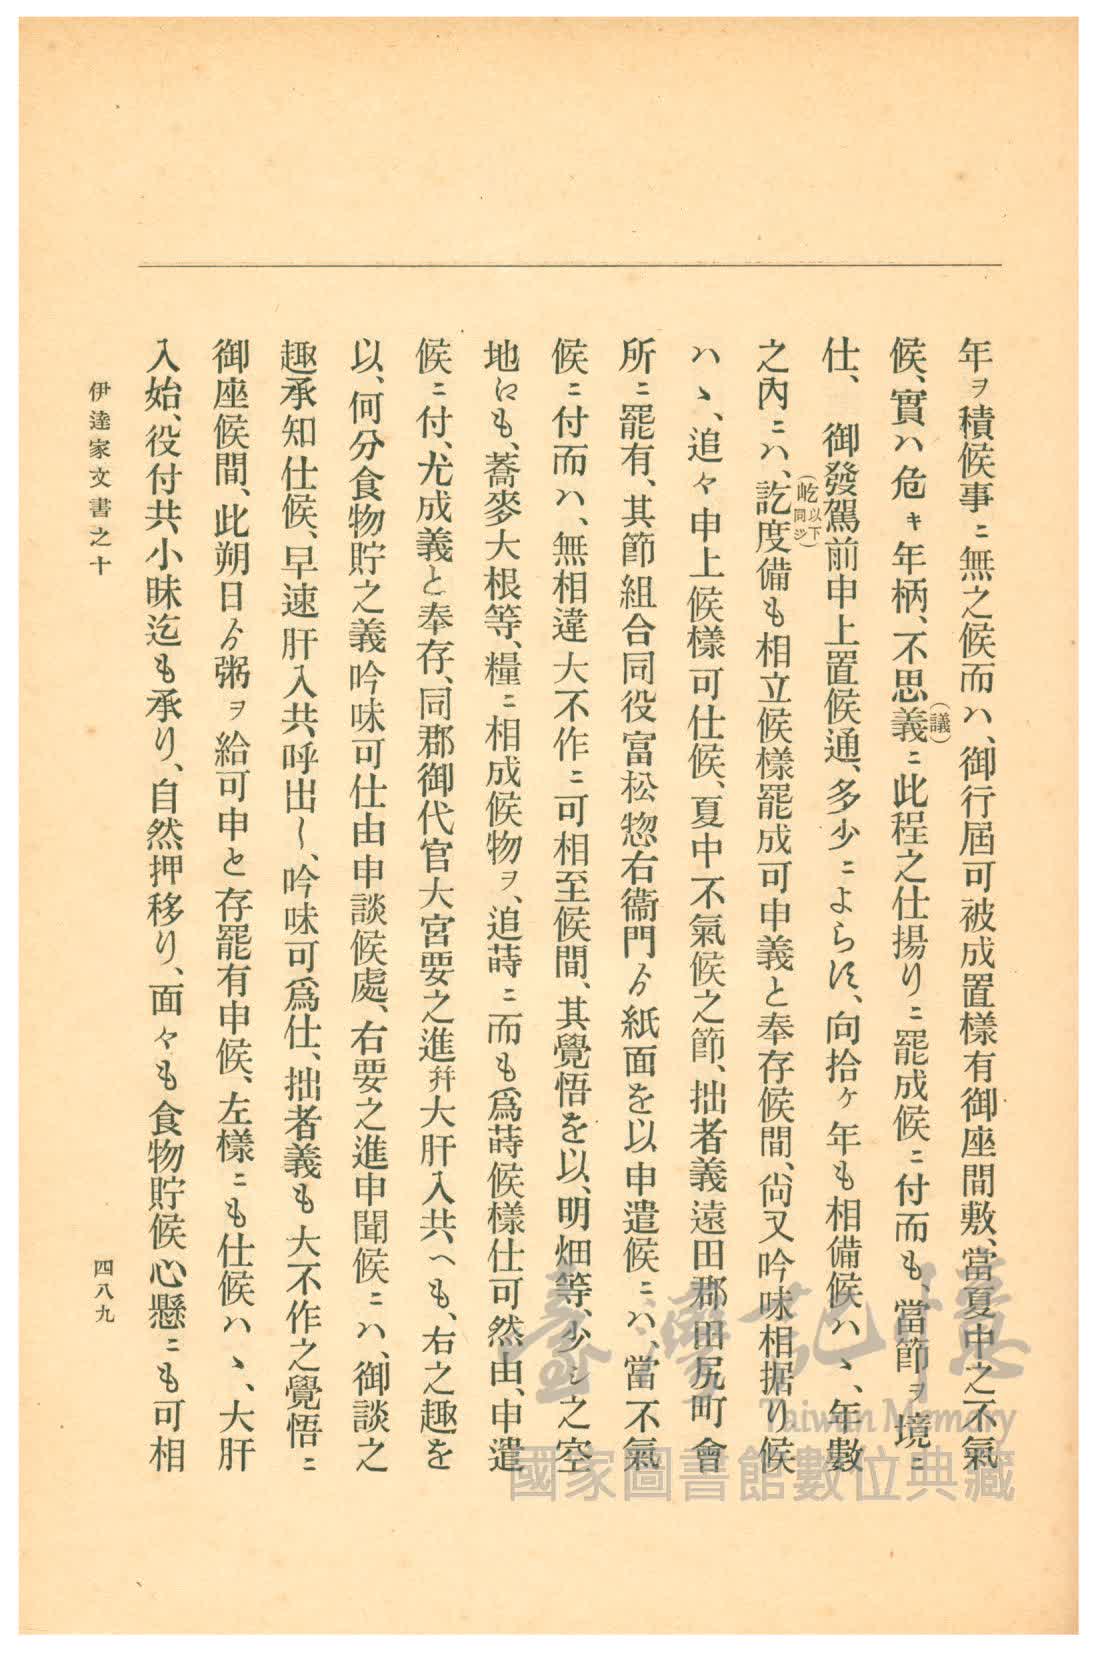 年ヲ積候事ニ無之候而ハ、御行屆可被成置樣有御座間敷、當夏中之不氣
候、實ハ危キ年柄、不思義(議)ニ此程之仕揚りニ罷成候ニ付而も、當節ヲ境ニ
仕、　御發駕前申上置候通、多少ニよらす、向拾ヶ年も相備候ハヽ、年數
之內ニハ、訖(屹以下同シ)度備も相立候樣罷成可申義と奉存候間、尙又吟味相据り候
ハヽ、追々申上候樣可仕候、夏中不氣候之節、拙者義遠田郡田尻町會
所ニ罷有、其節組合同役富松惣右衞門ゟ紙面を以申遣候ニハ、當不氣
候ニ付而ハ、無相違大不作ニ可相至候間、其覺悟を以、明畑等、少シ之空
地にも、蕎麥大根等、糧ニ相成候物ヲ、追蒔ニ而も爲蒔候樣仕可然由、申遣
候ニ付、尤成義と奉存、同郡御代官大宮要之進幷大肝入共へも、右之趣を
以、何分食物貯之義吟味可仕由申談候處、右要之進申聞候ニハ、御談之
趣承知仕候、早速肝入共呼出し、吟味可爲仕、拙者義も大不作之覺悟ニ
御座候間、此朔日ゟ粥ヲ給可申と存罷有申候、左樣ニも仕候ハヽ、大肝
入始、役付共、小昧迄も承り、自然押移り、面々も食物貯候心懸ニも可相
伊達家文書之十
四八九
臺灣記憶
Taiwan Memory
國家圖書館數位典藏